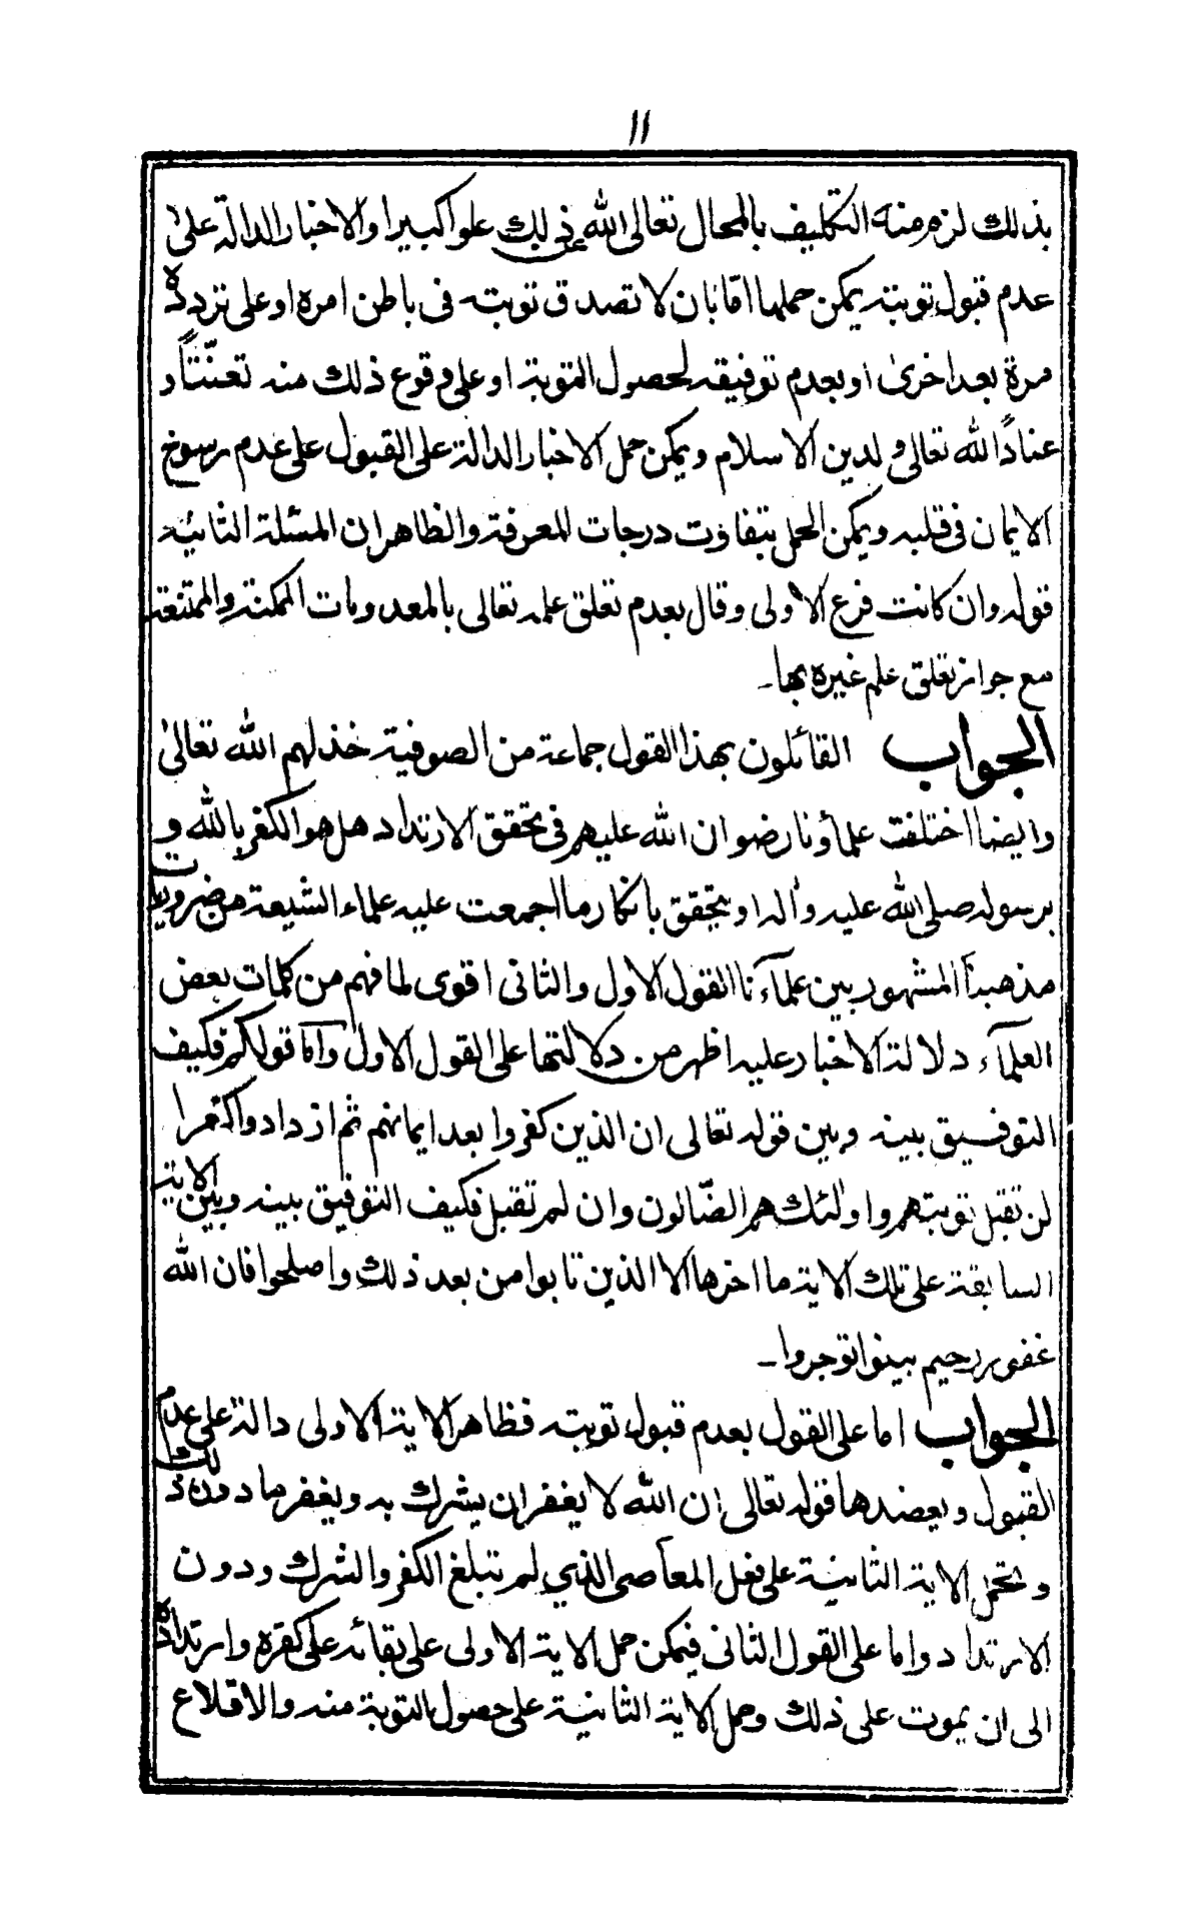 ١١
بذلك لزم منه التكليف بالمحال تعالى الله عن ذلك علوا كبيرا والاخبار الدالة على
عدم قبول توبته يمكن حملها اما بان لا تصدق توبته فى باطن امره او على تردده
مرة بعد اخرى او بعدم توفيقه لحصول التوبة او على وقوع ذلك منه تعنّتاً و
عناداً لله تعالى و لدين الاسلام ويمكن حمل الاخبار الدالة على القبول على عدم رسوخ
الايمان فى قلبه ويمكن الحمل بتفاوت درجات المعرفة والظاهر ان المسئلة الثانية
قوله وان كانت فرع الاولى وقال بعدم تعلق علمه تعالى بالمعدومات الممكنة والممتنعة
مع جواز تعلق علم غيره بها۔
الجواب القائلون بهذا القول جماعة من الصوفية خذلهم الله تعالى
وايضا اختلفت علماؤنا رضوان الله عليهم فى تحقق الارتداد هل هو الكفر بالله و
برسوله صلى الله عليه وآله او يتحقق بانكار ما اجمعت عليه علماء الشيعة من ضروريات
مذهبنا المشهور بين علمآءنا القول الاول والثانى اقوى لما فهم من كلمات بعض
العلمآء دلالة الاخبار عليه اظهر من دلالتها على القول الاول واما قولكم فكيف
التوفيق بينه وبين قوله تعالى ان الذين كفروا بعد ايمانهم ثم ازدادوا كفرا
لن تقبل توبتهم واولئك هم الضّالون وان لم تقبل فكيف التوفيق بينه وبين الاية
السابقة على تلك الاية ما اخرها الا الذين تابوا من بعد ذلك واصلحوا فان الله
غفور رحيم بينوا توجروا۔
الجواب اما على القول بعدم قبول توبته فظاهر الاية الاولى دالة على عدم
القبول ويعضدها قوله تعالى ان الله لا يغفر ان يشرك به ويغفر ما دون ذلك
وتحمل الاية الثانية على فعل المعاصى الذي لم تبلغ الكفر والشرك ودون
الارتداد واما على القول الثانى فيمكن حمل الاية الاولى على بقائه على كفره وارتداده
الى ان يموت على ذلك وحمل الاية الثانية على حصول التوبة منه والاقلاع